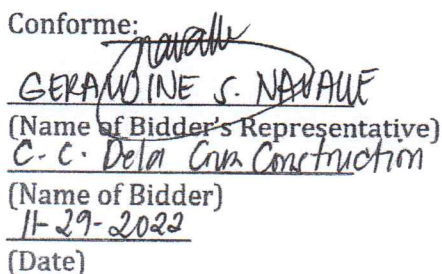 Conforme:
navalle
GERALDINE S. NAVALLE
(Name of Bidder's Representative)
C. C. Dela Cruz Construction
(Name of Bidder)
11-29-2022
(Date)